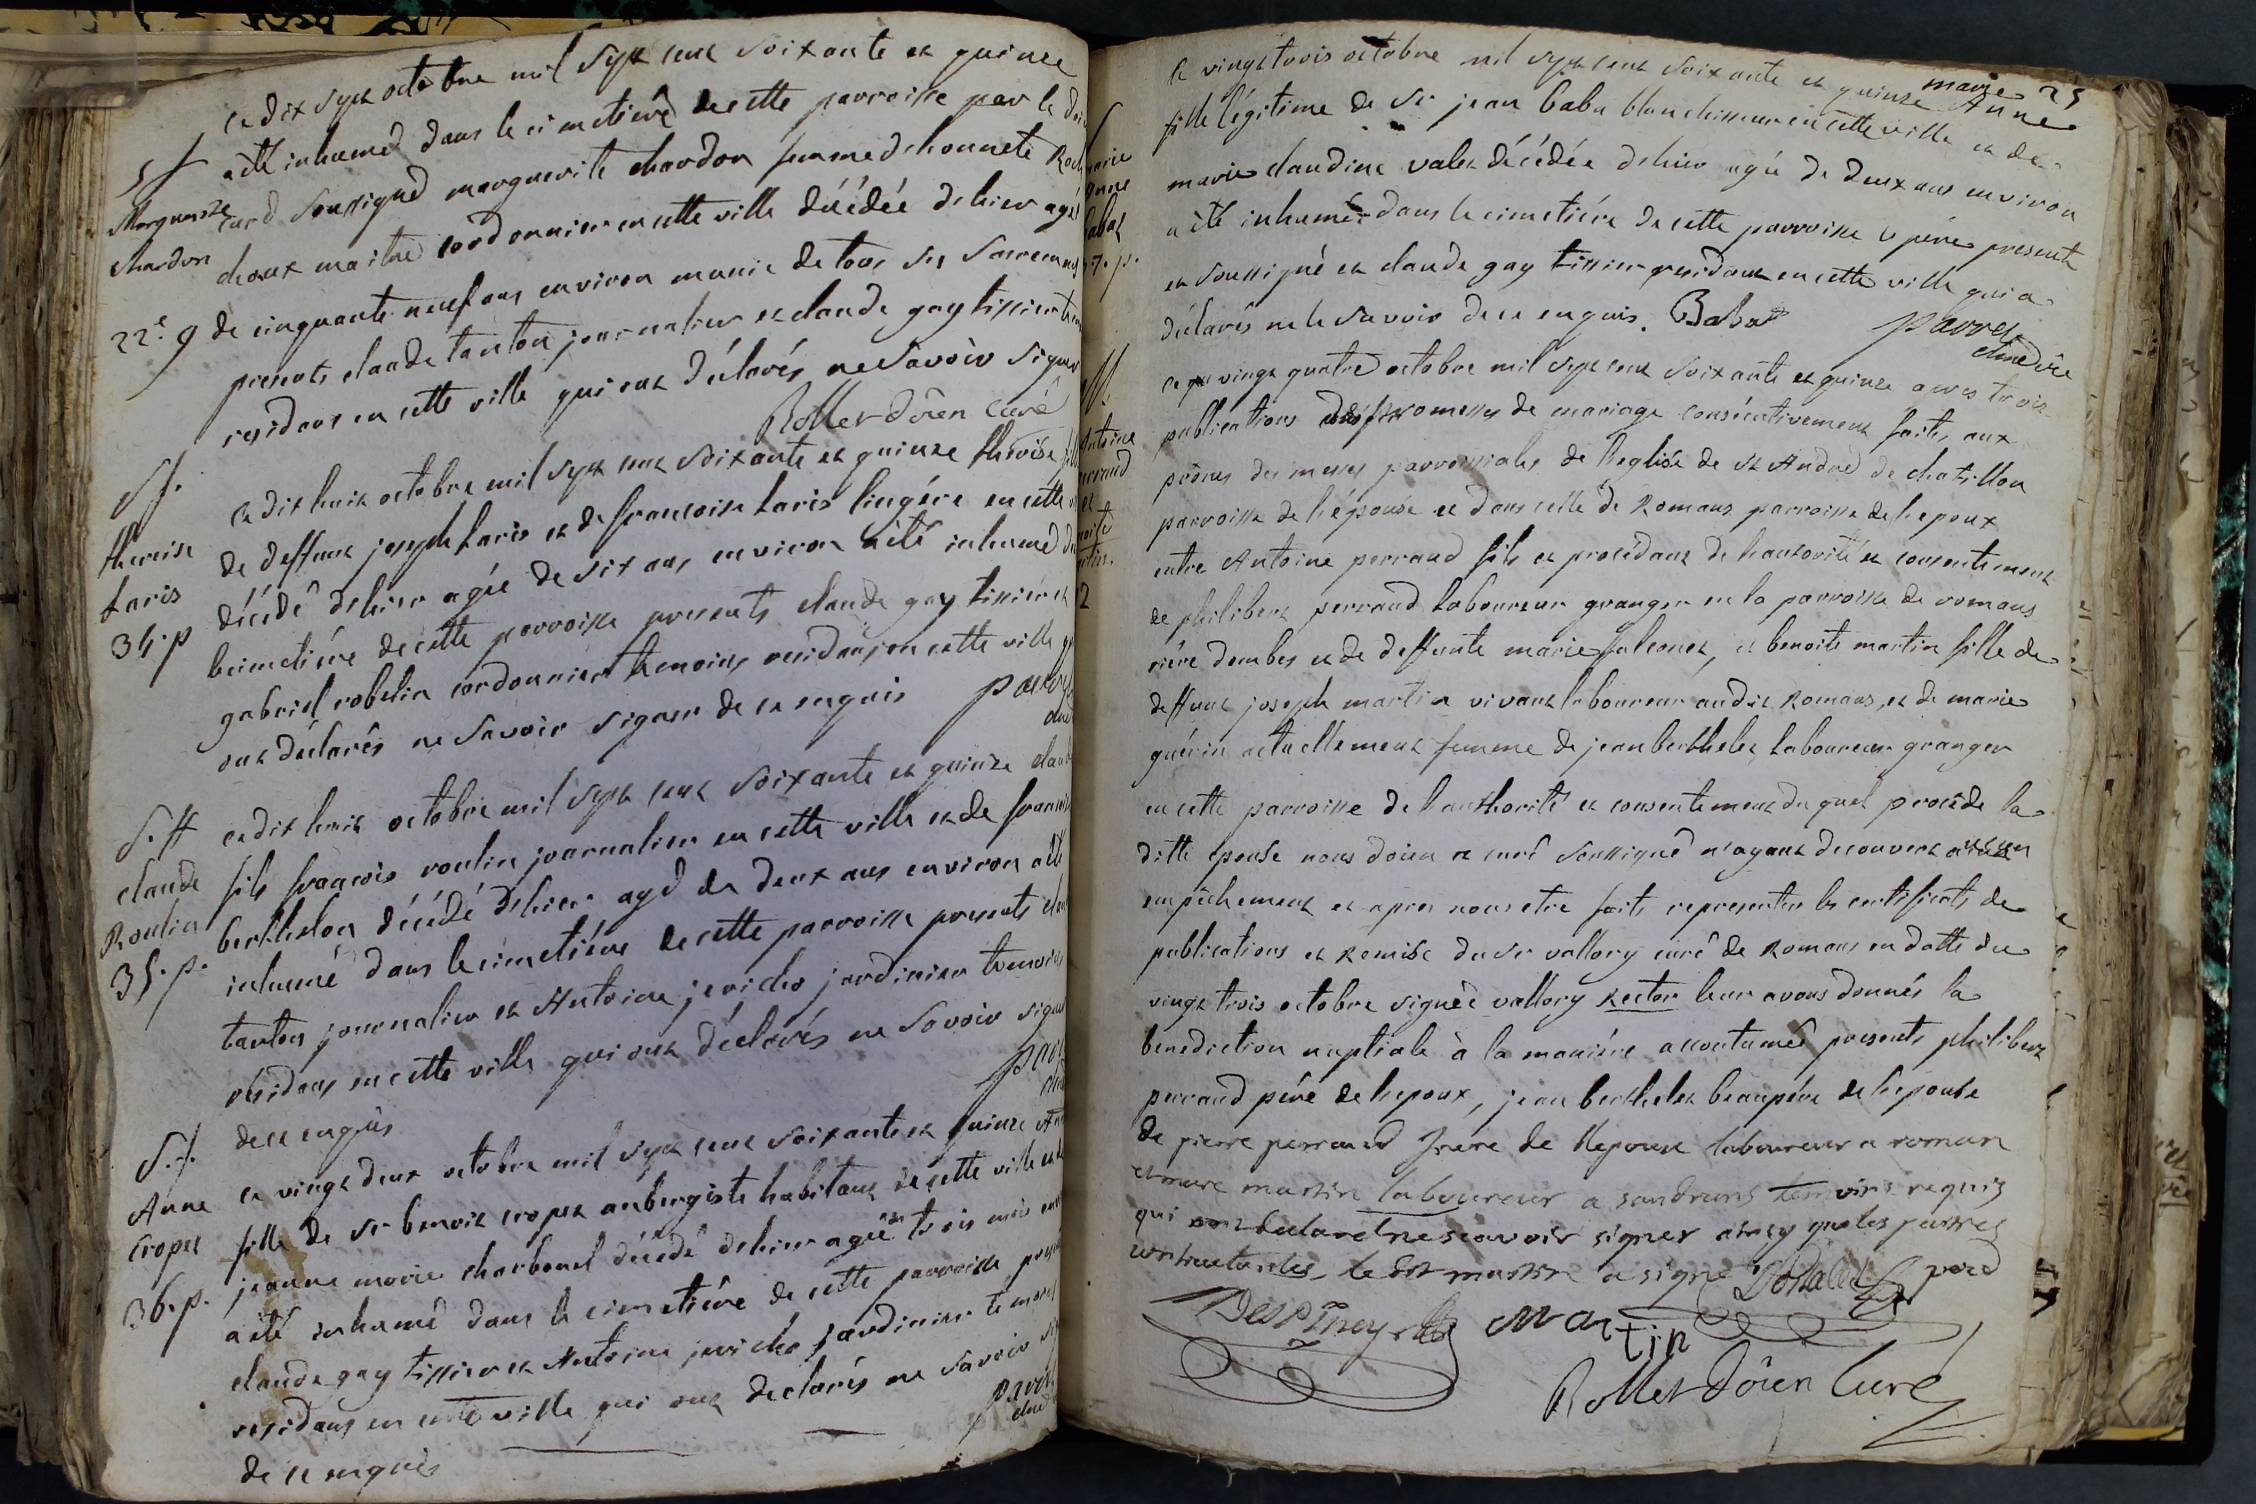 ce dix sept octobre mil sept cent soixante et quinze
a été inhumé dans le cimetière de cette parroisse par le
curé soussigné marguerite chardon femme d'honnete
choux maitre cordonnier en cette ville décédée d'hier agé
de cinquante neuf ans environ munie de tous ses sacrements
presents claude tanton journalier et claude gay tissier
residans en cette ville qui ont déclarés ne savoir signer
Rollet doïen curé
Sf
Marguerite
chardon
22e. g
ce dix huit octobre mil sept cent soixante et quinze theréise
de deffunt joseph Laris et de francoise Laris lingére en cette
décédé d'hier agée de six ans environ a été inhumé
le cimetière de cette parroisse presents claude gay tissier et
gabriel robelin cordonnier temoins residans en cette ville
ont déclarés ne savoir signer de ce enquis
Sf.
thereise
Laris
34. p
ce dix huit octobre mil sept cent soixante et quinze
fils francois roulin journalier en cette ville et de
berthelon décédé d'hier agé de deux ans environ a été
inhumé dans le cimetiére de cette parroisse presents
tanton journalier et Antoine jericho jardinier temoins
residans en cette ville qui ont déclarés ne savoir signer
de ce enquis
S. ff
claude
Roulin
35. p.
ce vingt deux octobre mil sept cent soixante et quinze
fille de sr benoit cropet aubergiste habitant de cette ville et de
jeanne marie charbonel décédé d'hier agée de trois mois
a été inhumé dans le cimetière de cette parroisse
claude gay tissier et Antoine jericho jardinier temoins
residans en cette ville qui ont declarés ne savoir
de ce enquis
S. f.
Anne
Cropet
36. p.
25
le vingt trois octobre mil sept cent soixante et quinze marie Anne
fille légitime de sr jean Baba blanchisseur en cette ville et de
marie claudine valet décédée d'hier agée de deux ans environ
a été inhumée dans le cimetiére de cette parroisse le pére present
et soussigné et claude gay tissier residant en cette ville qui a
déclarés ne le savoir de ce enquis. Babat
ce vingt quatre octobre mil sept cent soixante et quinze apres trois
publications des promesses de mariage consécutivement faites aux
prônes des messes parroissiales de l'eglise de st André de chatillon
parroisse de l'épouse et dans celle de Romans parroisse de l'epoux
entre Antoine perraud fils et procédant de l'autorité et consentement
de philibert perraud laboureur granger en la parroisse de romans
riére dombes et de deffunte marie falconet, et benoite martin fille de
deffunt joseph martin vivant laboureur audit Romans, et de marie
guérin actuellement femme de jean berthelet laboureur granger
en cette parroisse de l'authorité et consentement du quel procède la
ditte epouse nous doïen et curé soussigné n'ayant decouvert aucun
empêchement et apres nous etre faits representer les certificats de
publications et remise du sr vallory curé de Romans en datte du
vingt trois octobre signée vallory rector leur avons donnés la
benediction nuptiale à la maniére accoutumée presents philibert
perraud pére de l'epoux, jean berthelet beaupére de l'epouse
de pierre perraud frere de l'epoux laboureur a roman
et marc martin laboureur a sandrans temoins requis
qui ont declaré ne scavoir signer ainsy que les parties
contractantes le dit martin a signé
martin
Rollet doïen curé